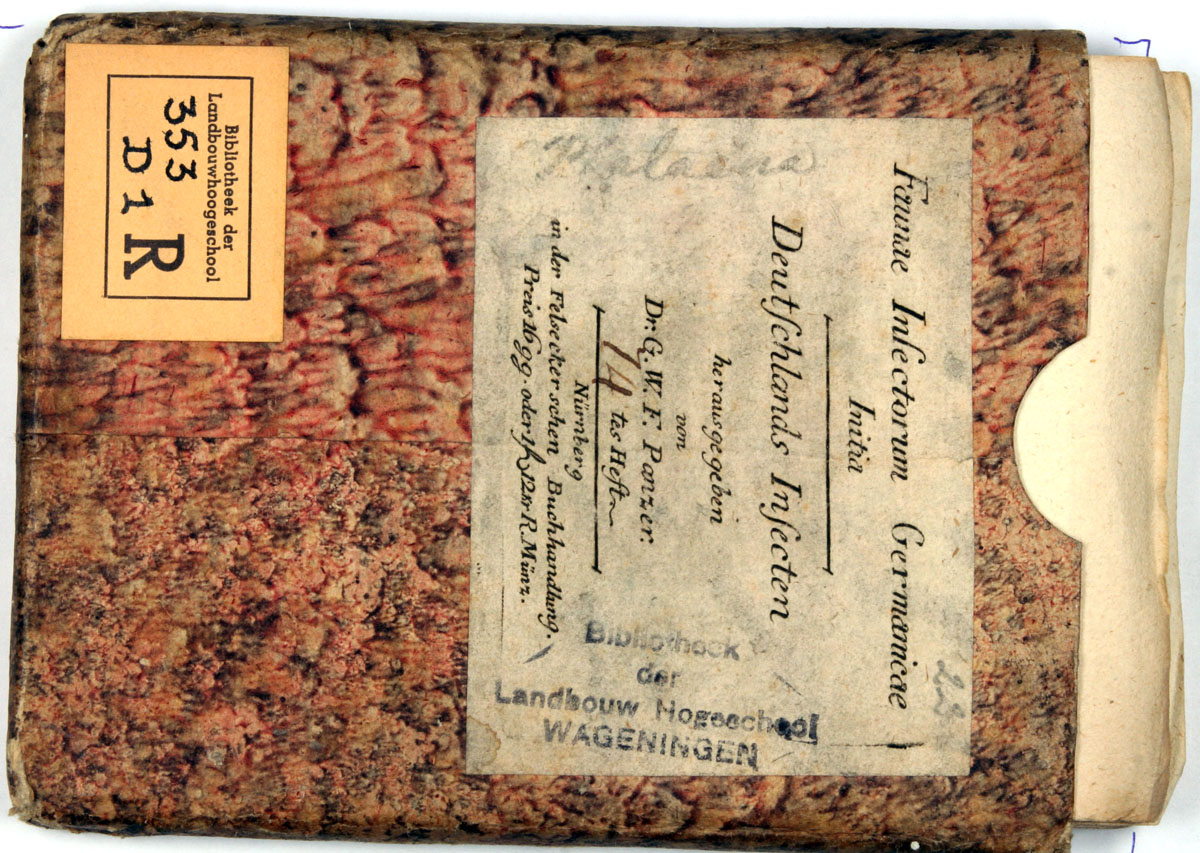 Bibliotheek der
Landbouwhoogeschool
353
D 1 R
Phalaena
Faunae Insectorum Germanicae
Initia
Deutſchlands Inſecten
herausgegeben
von
Dr. G. W. F. Panzer.
74 tes Heft
Nürnberg
in der Felseckerschen Buchhandlung.
Preis 16 gg. oder 1 f 12 kr R. Münz.
23
Bibliotheek
der
Landbouw Hogeschool
WAGENINGEN